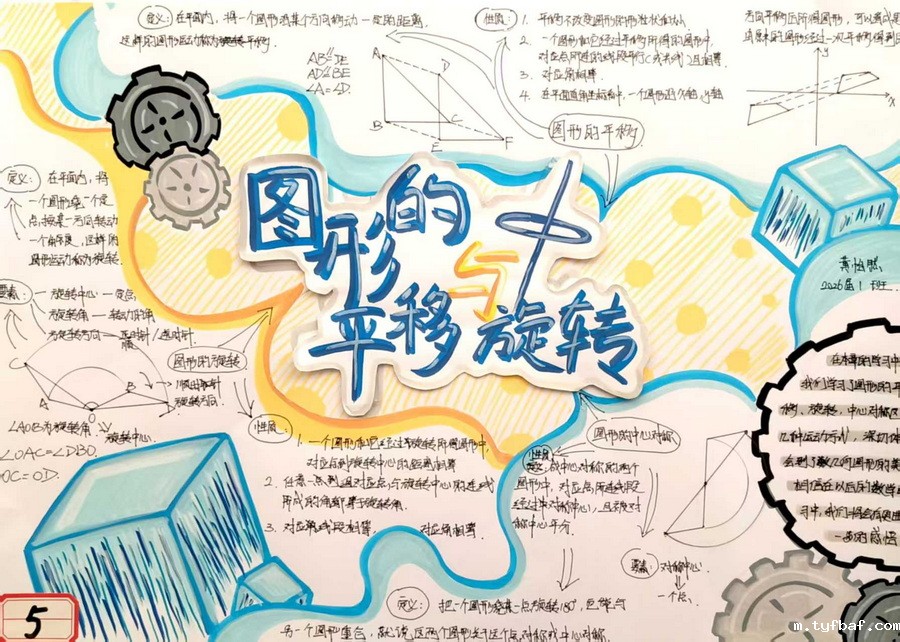 定义: 在平面内, 将一个图形沿某个方向移动一定的距离,
这样的图形运动称为旋转平移.
AB∥DE
AD∥BE
∠A=∠D.
A
D
B
C
E
F
性质: 1. 平移不改变图形的形状和大小
2. 一个图形和它经过平移所得的图形中,
对应点所连的线段平行(或共线)且相等
3. 对应角相等
4. 在平面直角坐标系中, 一个图形
图形的平移
y
x
图形的
平移与旋转
黄怡然
2026届1班.
定义: 在平面内, 将
一个图形绕一个定
点按某一方向转动
一个角度, 这样的
图形运动称为旋转.
要素: 一 旋转中心 一 定点
旋转角 一 转动的角
旋转方向 — 逆时针/顺时针
图形的旋转
C
A
B
D
O
顺时针
旋转方向
∠AOB为旋转角
旋转中心.
∠OAC=∠DBO.
OC=OD.
性质: 1. 一个图形和它经过旋转所得图形中,
对应点到旋转中心的距离相等
2. 任意一点到通对应点与旋转中心的连线
所成的角都等于旋转角.
3. 对应线段相等 对应角相等
图形的中心对称
性质: 成中心对称的两个
图形中, 对应点所连线段
经过对称中心, 且被对
称中心平分
要素: 对称中心.
一个点.
定义: 把一个图形绕某一点旋转180°, 它能与
另一个图形重合, 就说这两个图形关于这个点对称或中心对称.
在本章的学习中
我们学习了图形的平
移、旋转、中心对称
几种运动方式, 深切体
会到了几何图形的美
相信在以后的数学
习中, 我们
的感悟
5
m.tyfbaf.com